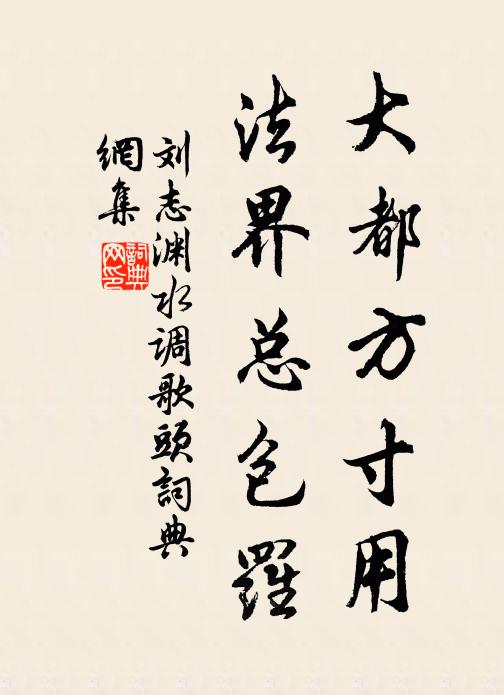 大都方寸用
法界总包罗
刘志渊水调歌頭詞典
網集
詞典网印